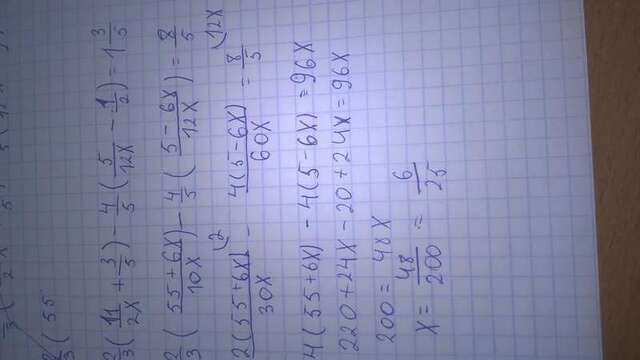 2/3 ( 55
2/3 ( 11/2x + 3/5 ) - 4/5 ( 5/12x - 1/2 ) = 1 3/5
2/3 ( 55+6x/10x ) - 4/5 ( 5-6x/12x ) = 8/5
2(55+6x)/30x \2 - 4(5-6x)/60x = 8/5 \12x
4(55+6x) - 4(5-6x) = 96x
220+24x-20+24x=96x
200 = 48x
x = 48/200 = 6/25